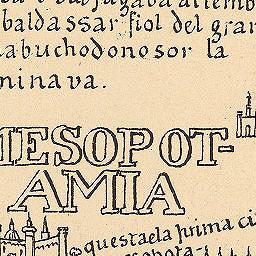 subjugava al temb
baldassar fiol del gran
nabuchodonosor la
minava.
MESOPOT-
AMIA
questa e la prima ci
sopota-